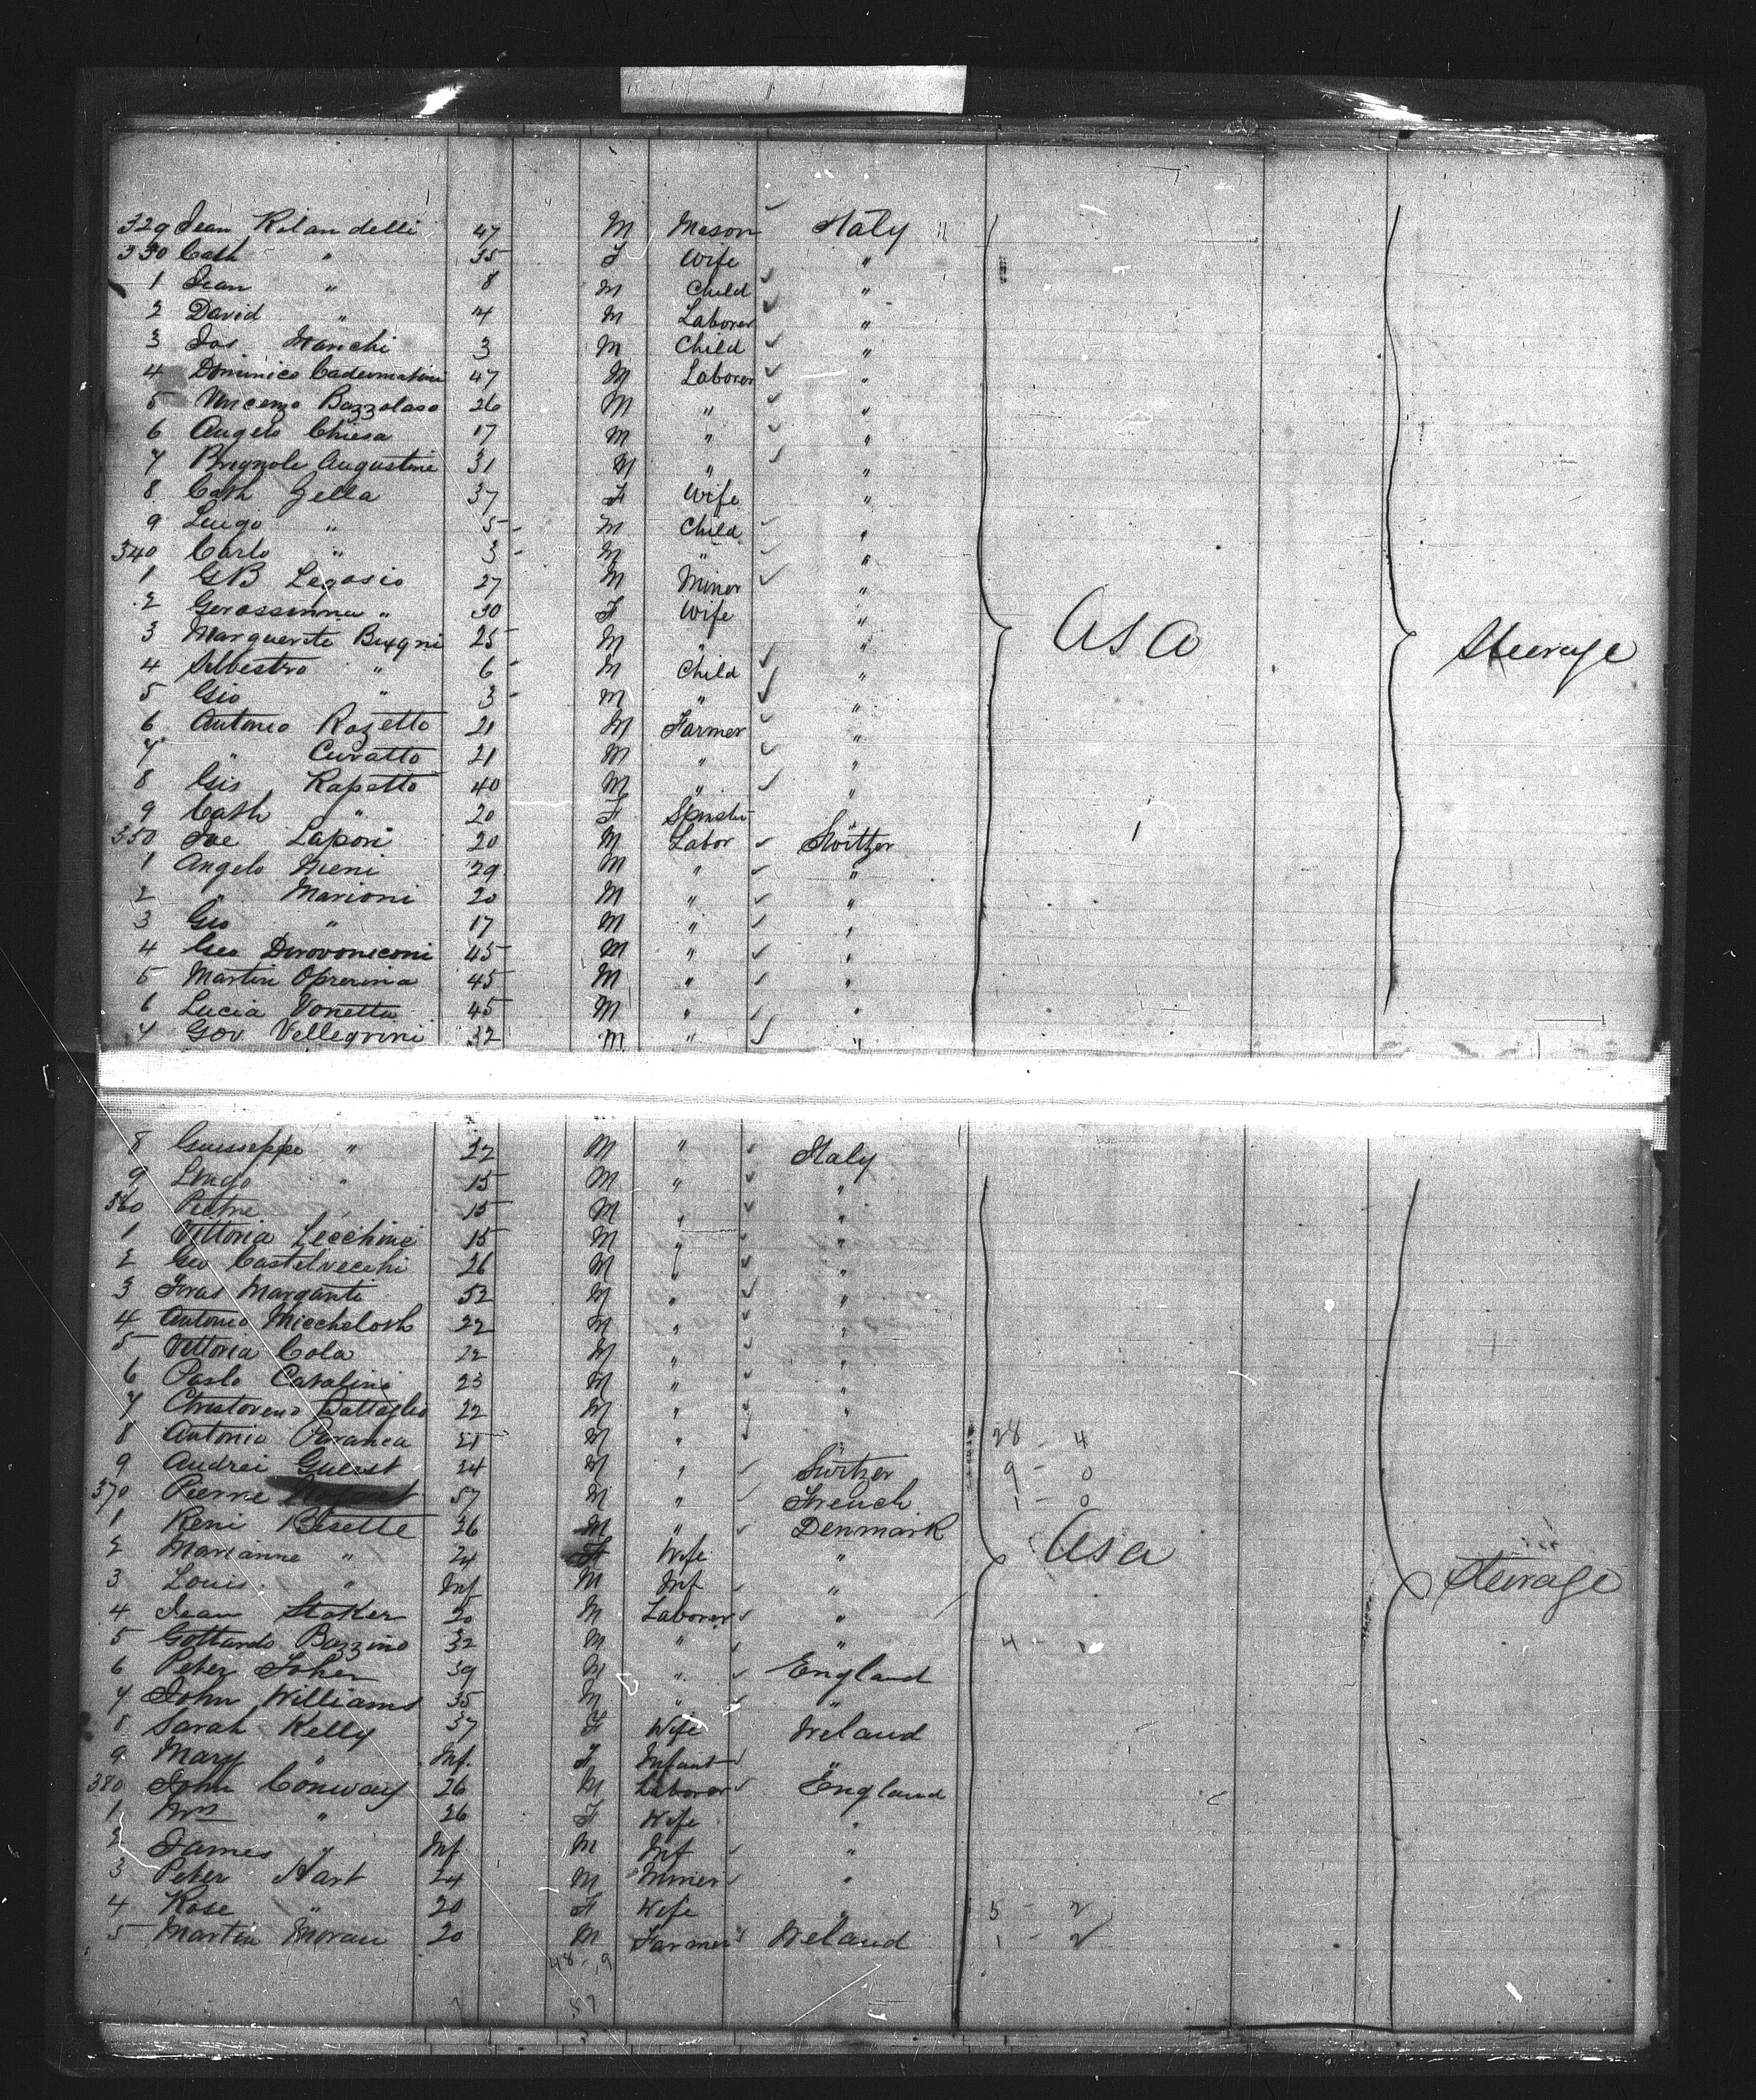 329 Jean Rilandelli 47 M Mason Italy "
330 Cath " 35 F Wife "
1 Jean " 8 M Child "
2 David " 4 M Laborer "
3 Jos Manchi 3 M Child "
4 Dominico Cadermatini 47 M Laborer "
5 Vincenzo Bazzolaso 26 M " "
6 Angelo Chiesa 17 M " "
7 Brignole Augustine 31 M " "
8 Cath Zella 37 F Wife "
9 Luigo " 5 M Child "
340 Carlo " 3 M " "
1 GB Legasio 27 M Minor "
2 " 30 F Wife "
3 Marguerite 25 M " " USA
4 Silvestro " 6 M Child " Steerage
5 Gio " 3 M " "
6 Antonio Rozetto 21 M Farmer "
7 " Curatto 21 M " "
8 Gio Rapetto 40 M " "
9 Cath " 20 F Spinster
350 Joe Lapori 20 M Labor Switzer
1 Angelo Nieni 29 M " "
2 " Marioni 20 M " "
3 Geo " 17 M " "
4 Geo 45 M " "
5 Martin 45 M " "
6 Lucia Vonetta 45 M " "
7 Gov Vellegrini 32 M " "
8 Guiseppe " 22 M " Italy
9 Lingo " 15 M " "
360 Pietre " 15 M " "
1 Vittoria Lecchine 15 M " "
2 Geo Castelvecchi 26 M " "
3 Fras Marganti 52 M " "
4 Antonio Miechelosh 22 M " "
5 Vittoria Cola 22 M " "
6 Paolo Catalini 23 M " "
7 Battaglio 22 M " "
8 Antonio Paranca 21 M " 28 - 4
9 Audrei Guerst 24 M " Switzer 9 - 0
370 Pierre 57 M " French 1 - 0
1 Reni Bisette 26 M " Denmark
2 Marianne " 24 F Wife " USA
3 Louis " Inf M Inf " Steerage
4 Jean Stoker 20 M Laborer "
5 Gottardo Bazzino 32 M " " 4 - 1
6 Peter Joher 39 M " England
7 John Williams 35 M " "
8 Sarah Kelly 37 F Wife Ireland
9 Mary " Inf. F Infant "
380 John Conway 26 M Laborer England
1 Mrs " 26 F Wife "
2 James " Inf M Inf "
3 Peter Hart 24 M Minier "
4 Rose " 20 F Wife " 5 - 2
5 Martin Moran 20 M Farmer Ireland 1 - 2
48 - 9
57